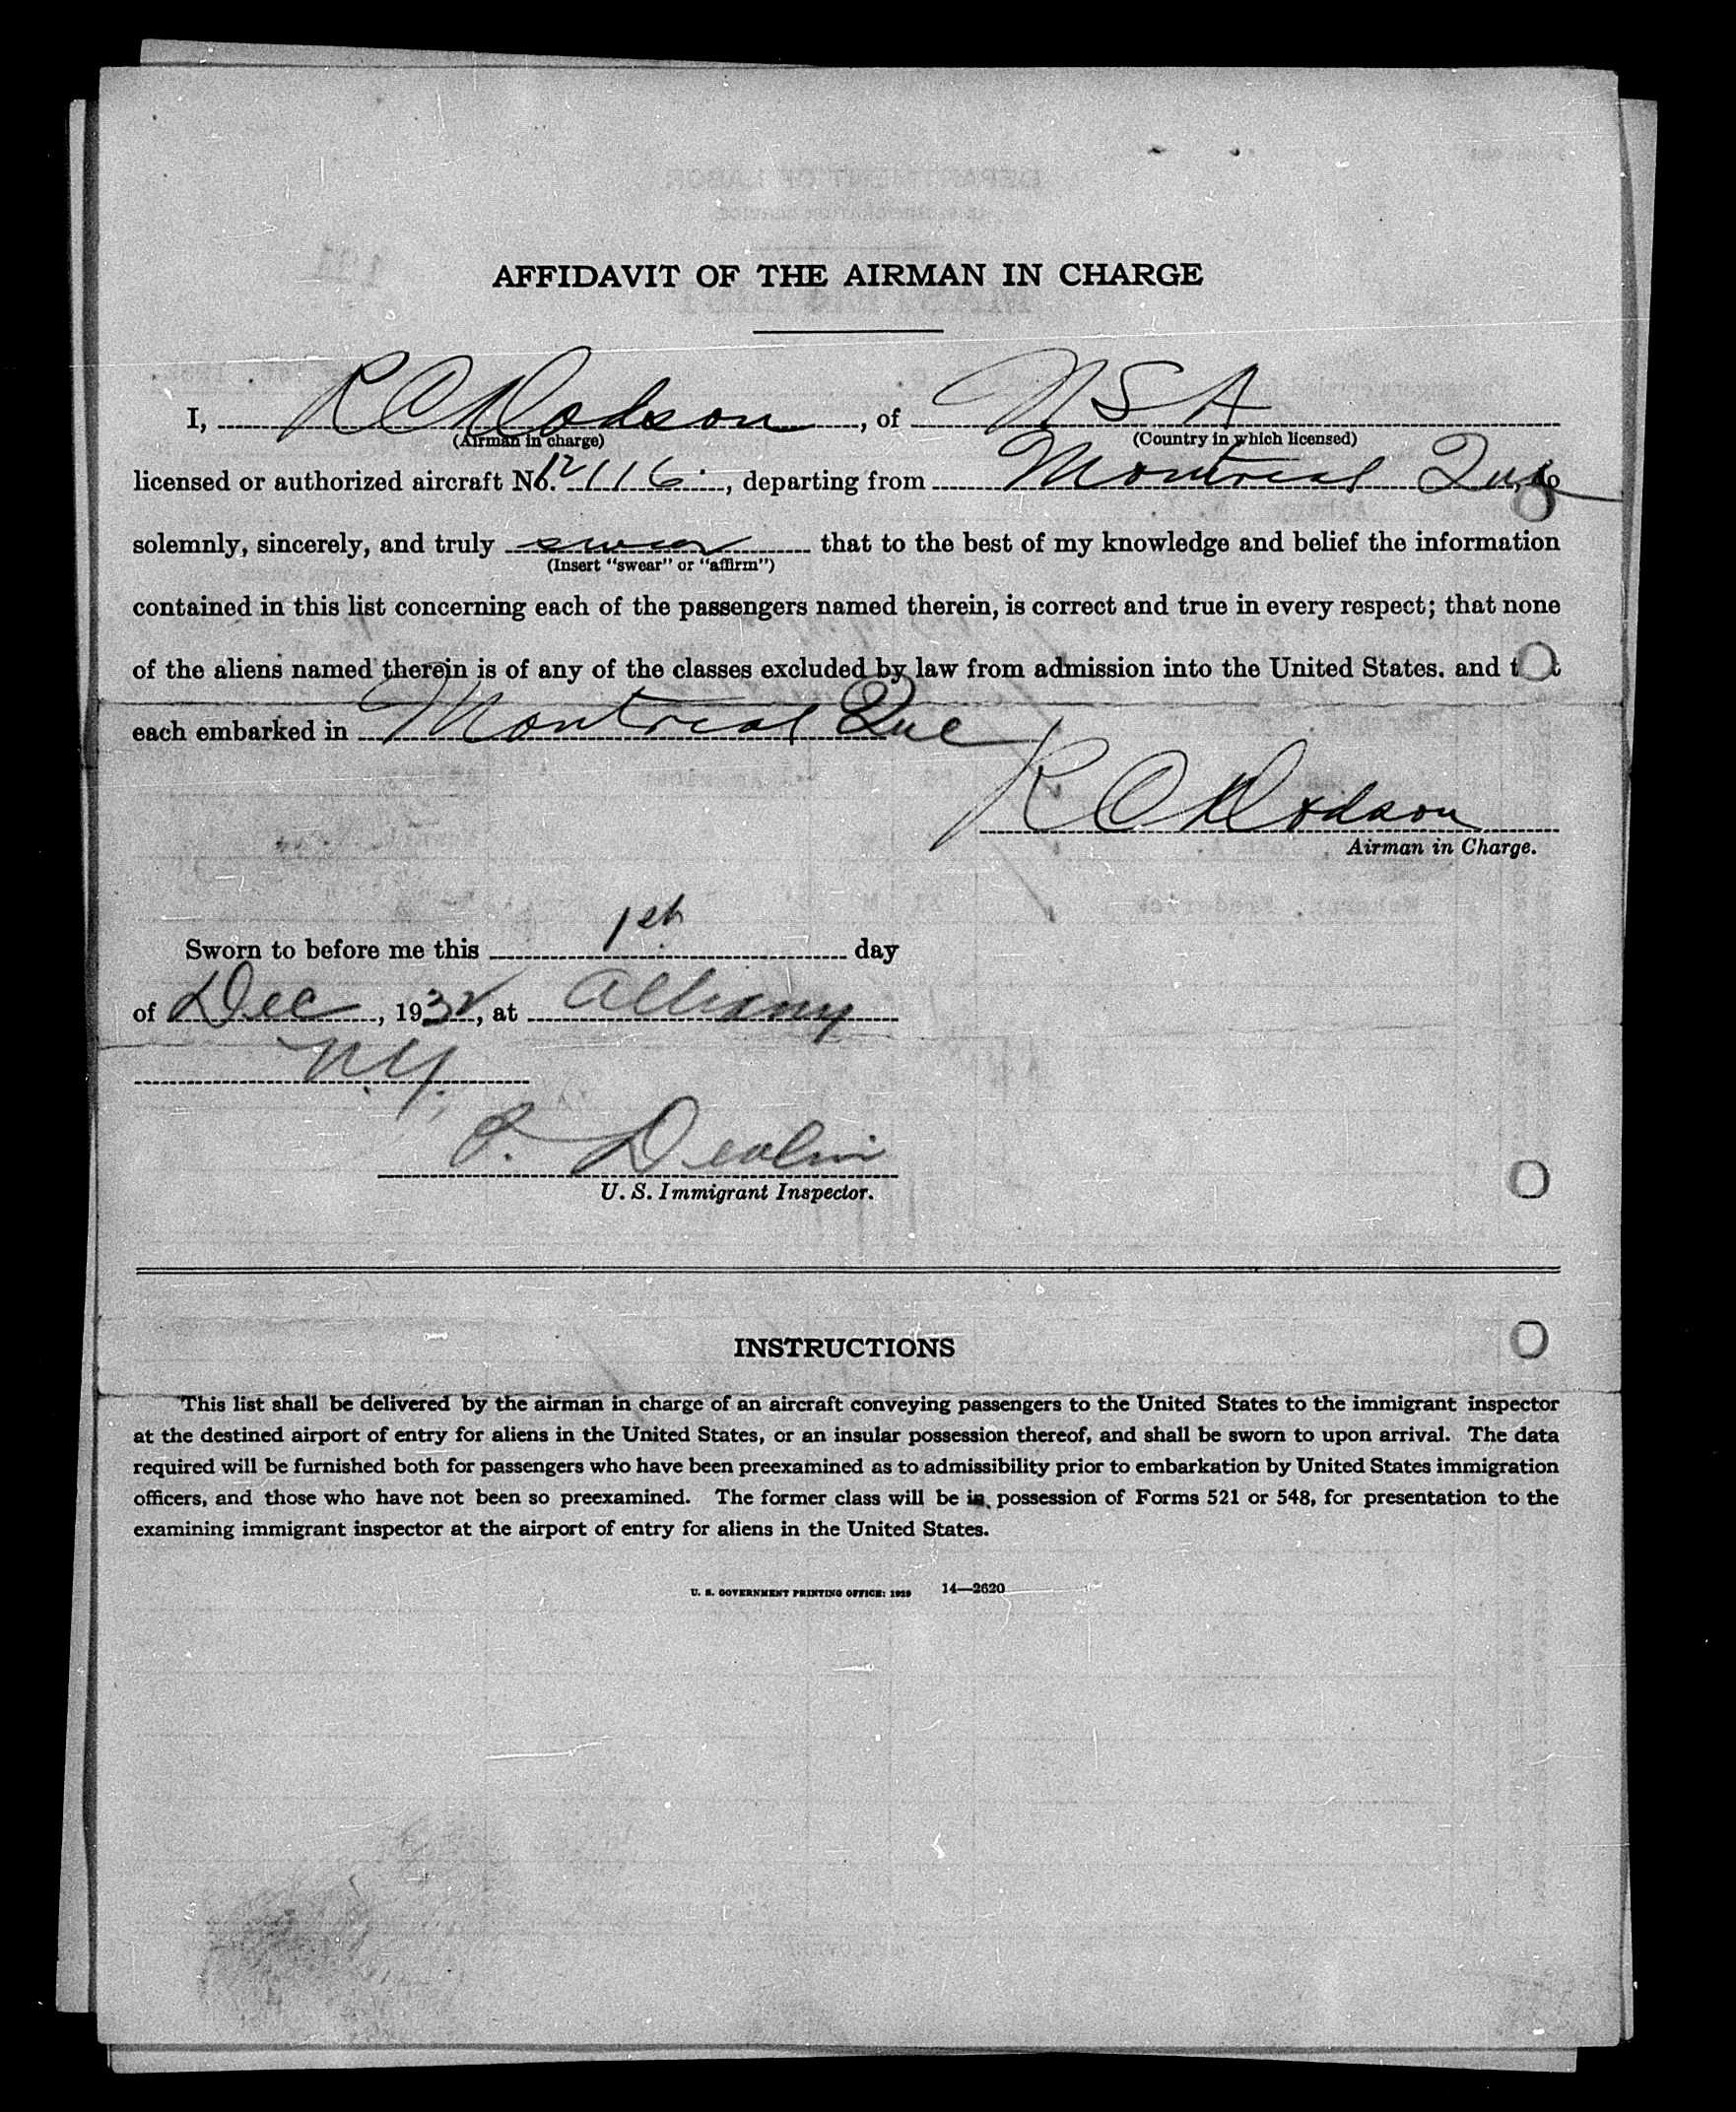 AFFIDAVIT OF THE AIRMAN IN CHARGE
I, R C Dodson, of U S A
(Airman in charge) (Country in which licensed)
licensed or authorized aircraft No. 12116, departing from Montreal Que, do
solemnly, sincerely, and truly swear that to the best of my knowledge and belief the information
(Insert "swear" or "affirm")
contained in this list concerning each of the passengers named therein, is correct and true in every respect; that none
of the aliens named therein is of any of the classes excluded by law from admission into the United States. and t t
each embarked in Montreal Que
R C Dodson
Airman in Charge.
Sworn to before me this 1st day
of Dec, 1932, at Albany
N.Y.
U. S. Immigrant Inspector.
INSTRUCTIONS
This list shall be delivered by the airman in charge of an aircraft conveying passengers to the United States to the immigrant inspector
at the destined airport of entry for aliens in the United States, or an insular possession thereof, and shall be sworn to upon arrival. The data
required will be furnished both for passengers who have been preexamined as to admissibility prior to embarkation by United States immigration
officers, and those who have not been so preexamined. The former class will be in possession of Forms 521 or 548, for presentation to the
examining immigrant inspector at the airport of entry for aliens in the United States.
U. S. GOVERNMENT PRINTING OFFICE: 1929 14—2620